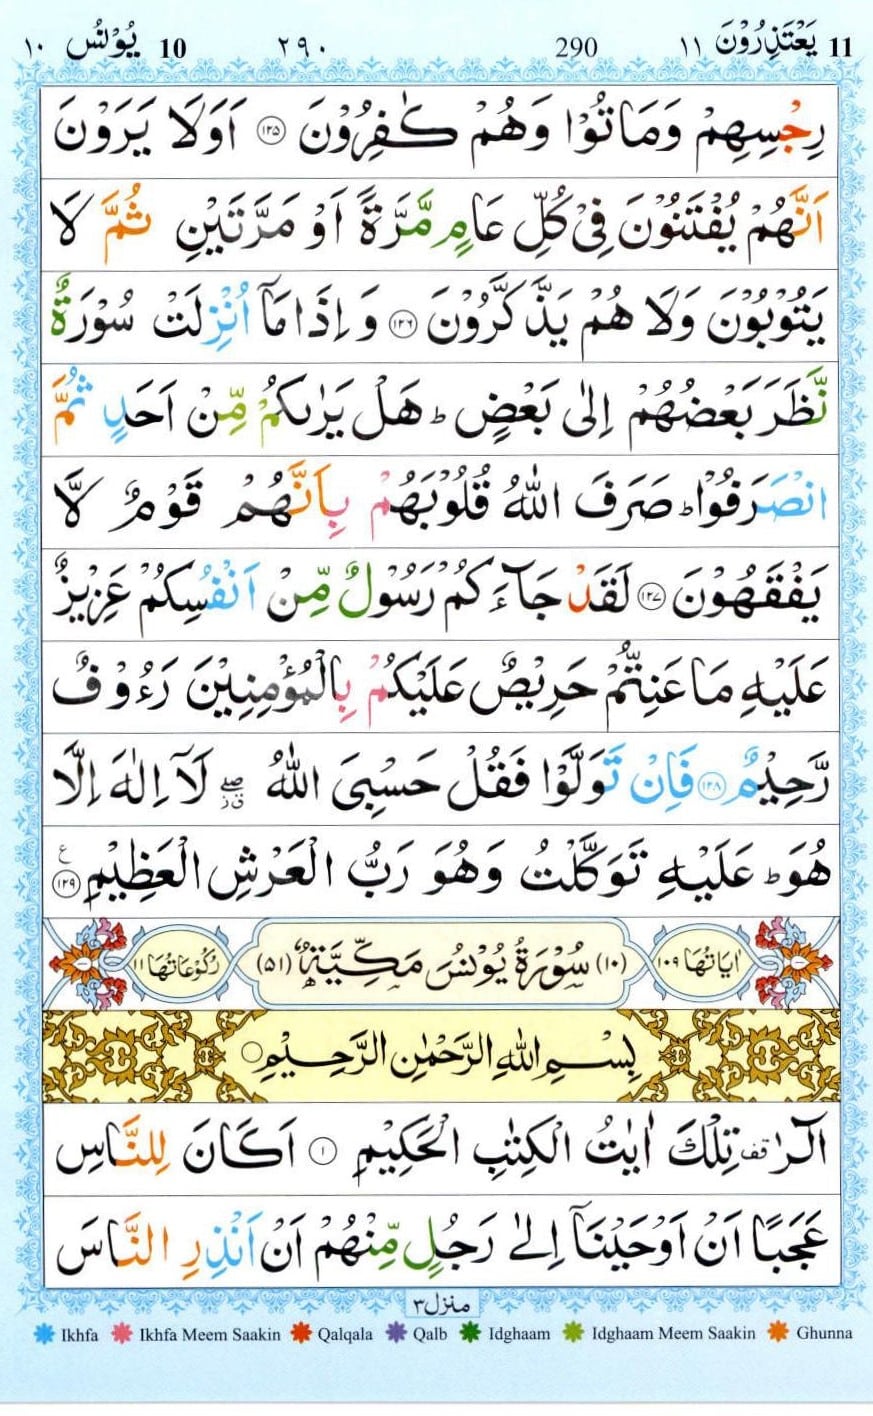 11 يَعْتَذِرُوْنَ ۱۱ 290 ۲۹۰ 10 يُوْنُس ۱۰
رِجْسِهِمْ وَمَاتُوْا وَهُمْ كٰفِرُوْنَ ۝۱۲۵ اَوَلَا يَرَوْنَ
اَنَّهُمْ يُفْتَنُوْنَ فِىْ كُلِّ عَامٍ مَّرَّةً اَوْ مَرَّتَيْنِ ثُمَّ لَا
يَتُوْبُوْنَ وَلَا هُمْ يَذَّكَّرُوْنَ ۝۱۲۶ وَ اِذَا مَآ اُنْزِلَتْ سُوْرَةٌ
نَّظَرَ بَعْضُهُمْ اِلٰى بَعْضٍ ؕ هَلْ يَرٰٮكُمْ مِّنْ اَحَدٍ ثُمَّ
انْصَرَفُوْا ؕ صَرَفَ اللّٰهُ قُلُوْبَهُمْ بِاَنَّهُمْ قَوْمٌ لَّا
يَفْقَهُوْنَ ۝۱۲۷ لَقَدْ جَآءَكُمْ رَسُوْلٌ مِّنْ اَنْفُسِكُمْ عَزِيْزٌ
عَلَيْهِ مَا عَنِتُّمْ حَرِيْصٌ عَلَيْكُمْ بِالْمُؤْمِنِيْنَ رَءُوْفٌ
رَّحِيْمٌ ۝۱۲۸ فَاِنْ تَوَلَّوْا فَقُلْ حَسْبِىَ اللّٰهُ ۖ لَآ اِلٰهَ اِلَّا
هُوَ ؕ عَلَيْهِ تَوَكَّلْتُ وَهُوَ رَبُّ الْعَرْشِ الْعَظِيْمِ ۝۱۲۹ ع
اٰيَاتُهَا ۱۰۹ (۱۰) سُوْرَةُ يُوْنُسَ مَكِّيَّةٌ (۵۱) رُكُوْعَاتُهَا ۱۱
بِسْمِ اللّٰهِ الرَّحْمٰنِ الرَّحِيْمِ
الٓرٰ قف تِلْكَ اٰيٰتُ الْكِتٰبِ الْحَكِيْمِ ۝۱ اَكَانَ لِلنَّاسِ
عَجَبًا اَنْ اَوْحَيْنَآ اِلٰى رَجُلٍ مِّنْهُمْ اَنْ اَنْذِرِ النَّاسَ
منزل ۳
Ikhfa Ikhfa Meem Saakin Qalqala Qalb Idghaam Idghaam Meem Saakin Ghunna